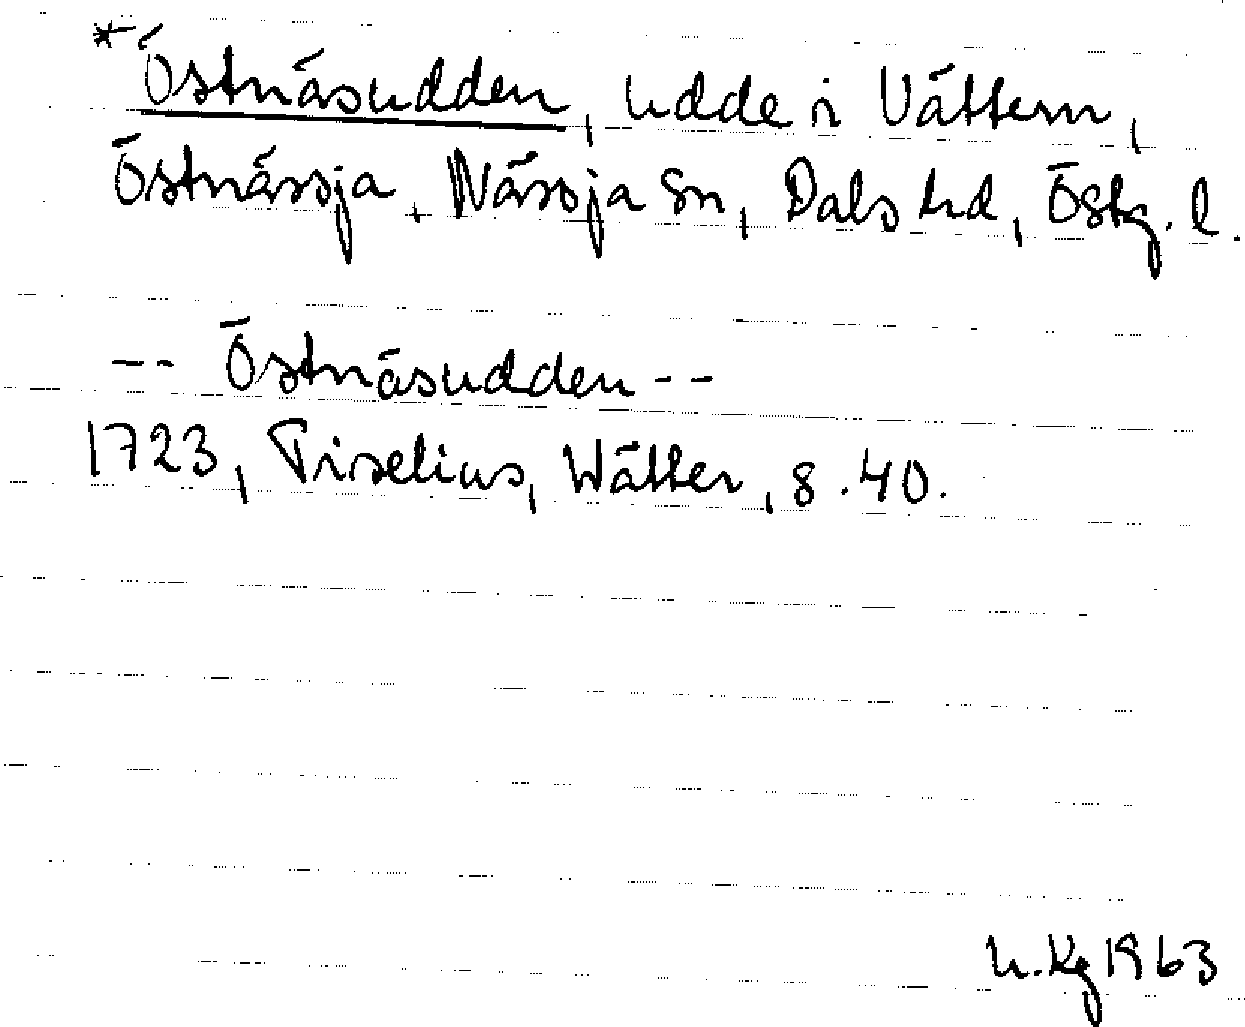 *Östnäsudden, udde i Vättern,
Östnässja, Nässja sn, Dals hd, Östg. l.
-- Östnäsudden --
1723, Tiselius, Wätter, s. 40.
h. Kg 1963